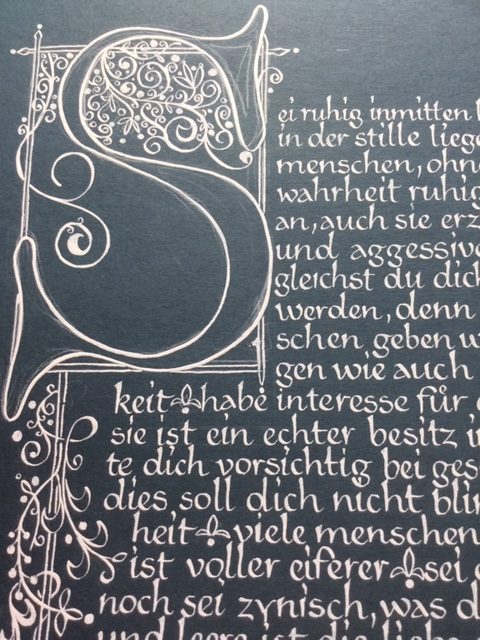 Sei ruhig inmitten
in der stille
menschen, ohne
wahrheit ruhig
an, auch sie
und aggessive
gleichst du dich
werden, denn
schen, geben
gen wie auch
keit habe interesse für
sie ist ein echter besitz
te dich vorsichtig bei
dies soll dich nicht
heit viele menschen
ist voller eiferer sei
noch sei zynisch, was
und leere ist die